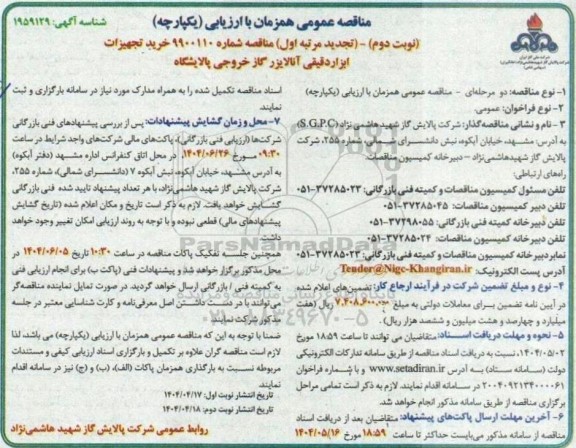 مناقصه عمومی همزمان با ارزیابی (یکپارچه)
شناسه آگهی: ۱۹۵۹۱۲۹
(نوبت دوم) - (تجدید مرتبه اول) مناقصه شماره ۹۹۰۰۱۱۰ خرید تجهیزات
ابزاردقیقی آنالایزر گاز خروجی پالایشگاه
۱- نوع مناقصه: دو مرحله‌ای - مناقصه عمومی همزمان با ارزیابی (یکپارچه)
۲- نوع فراخوان: عمومی.
۳- نام و نشانی مناقصه‌گذار: شرکت پالایش گاز شهید هاشمی نژاد (S.G.P.C)
به آدرس: مشهد، خیابان آبکوه، نبش دانشسرای شمالی، شماره ۲۵۵، شرکت
پالایش گاز شهیدهاشمی‌نژاد – دبیرخانه کمیسیون مناقصات
راه‌های ارتباطی:
تلفن مسئول کمیسیون مناقصات و کمیته فنی بازرگانی: ۳۷۲۸۵۰۲۳-۰۵۱
تلفن دبیر کمیسیون مناقصات: ۳۷۲۸۵۰۴۵-۰۵۱
تلفن دبیر کمیته فنی بازرگانی: ۳۷۲۹۸۰۵۵-۰۵۱
تلفن دبیرخانه کمیسیون مناقصات: ۳۷۲۸۵۰۲۴-۰۵۱
نمابر دبیرخانه کمیسیون مناقصات و کمیته فنی بازرگانی: ۳۷۲۸۵۰۲۳-۰۵۱
آدرس پست الکترونیک: Tender@Nigc-Khangiran.ir
۴- نوع و مبلغ تضمین شرکت در فرآیند ارجاع کار: تضمین‌های اعلام شده
در آیین نامه تضمین برای معاملات دولتی به مبلغ ریال (هفت
میلیارد و چهارصد و هشت میلیون و ششصد هزار ریال).
۵- نحوه و مهلت دریافت اسناد: متقاضیان می توانند تا ساعت ۱۸:۵۹ مورخ
۱۴۰۴/۰۵/۰۲، نسبت به دریافت اسناد مناقصه از طریق سامانه تدارکات الکترونیکی
دولت (سامانه ستاد) به آدرس www.setadiran.ir و با شماره فراخوان
۲۰۰۴۰۹۲۱۳۴۰۰۰۰۶۱ در سامانه اقدام نمایند. لازم به ذکر است تمامی مراحل
برگزاری مناقصه از طریق سامانه مذکور خواهد شد.
۶- آخرین مهلت ارسال پاکت‌های پیشنهاد: متقاضیان بعد از دریافت اسناد
مناقصه از سامانه مذکور می‌بایست حداکثر تا ساعت ۱۸:۵۹ مورخ ۱۴۰۴/۰۵/۱۶
اسناد مناقصه تکمیل شده را به همراه مدارک مورد نیاز در سامانه بارگزاری و ثبت
نمایند.
۷- محل و زمان گشایش پیشنهادات: پس از بررسی پیشنهادهای فنی بازرگانی
شرکت‌ها (ارزیابی فنی بازرگانی)، پاکت‌های مالی شرکت‌های واجد شرایط در ساعت
۰۹:۳۰ مورخ ۱۴۰۴/۰۶/۲۶ در محل اتاق کنفرانس اداره مشهد (دفتر آبکوه)
به آدرس مشهد، خیابان آبکوه، نبش آبکوه ۷ (دانشسرای شمالی)، شماره ۲۵۵،
شرکت پالایش گاز شهید هاشمی نژاد، با هر تعداد پیشنهاد تایید شده فنی بازرگانی
گشایش خواهد یافت. لازم به ذکر است تاریخ و مکان اعلام شده (تاریخ گشایش
پیشنهادهای مالی) قطعی نبوده و با توجه به روند ارزیابی امکان تغییر وجود خواهد
داشت.
همچنین جلسه تفکیک پاکات مناقصه در ساعت ۱۰:۳۰ تاریخ ۱۴۰۴/۰۶/۰۵ در
محل مذکور برگزار خواهد شد و پیشنهادات فنی (پاکت ب) برای انجام ارزیابی فنی
به کمیته فنی / بازرگانی ارسال خواهد گردید. در صورت تمایل نماینده مناقصه‌گر
می‌توانند با در دست داشتن اصل معرفی‌نامه و کارت شناسایی معتبر در جلسه
مذکور شرکت نمایند.
ضمنا با توجه به این که مناقصه عمومی همزمان با ارزیابی (یکپارچه) می باشد، لذا
لازم است مناقصه گران علاوه بر تکمیل و بارگزاری اسناد ارزیابی کیفی و مستندات
مربوطه نسبت به بارگذاری همزمان پاکات (الف)، (ب) و (ج) نیز در سامانه اقدام
نمایند.
تاریخ انتشار نوبت اول: ۱۴۰۴/۰۴/۱۷
تاریخ انتشار نوبت دوم: ۱۴۰۴/۰۴/۱۸
روابط عمومی شرکت پالایش گاز شهید هاشمی‌نژاد
ParsNamadData